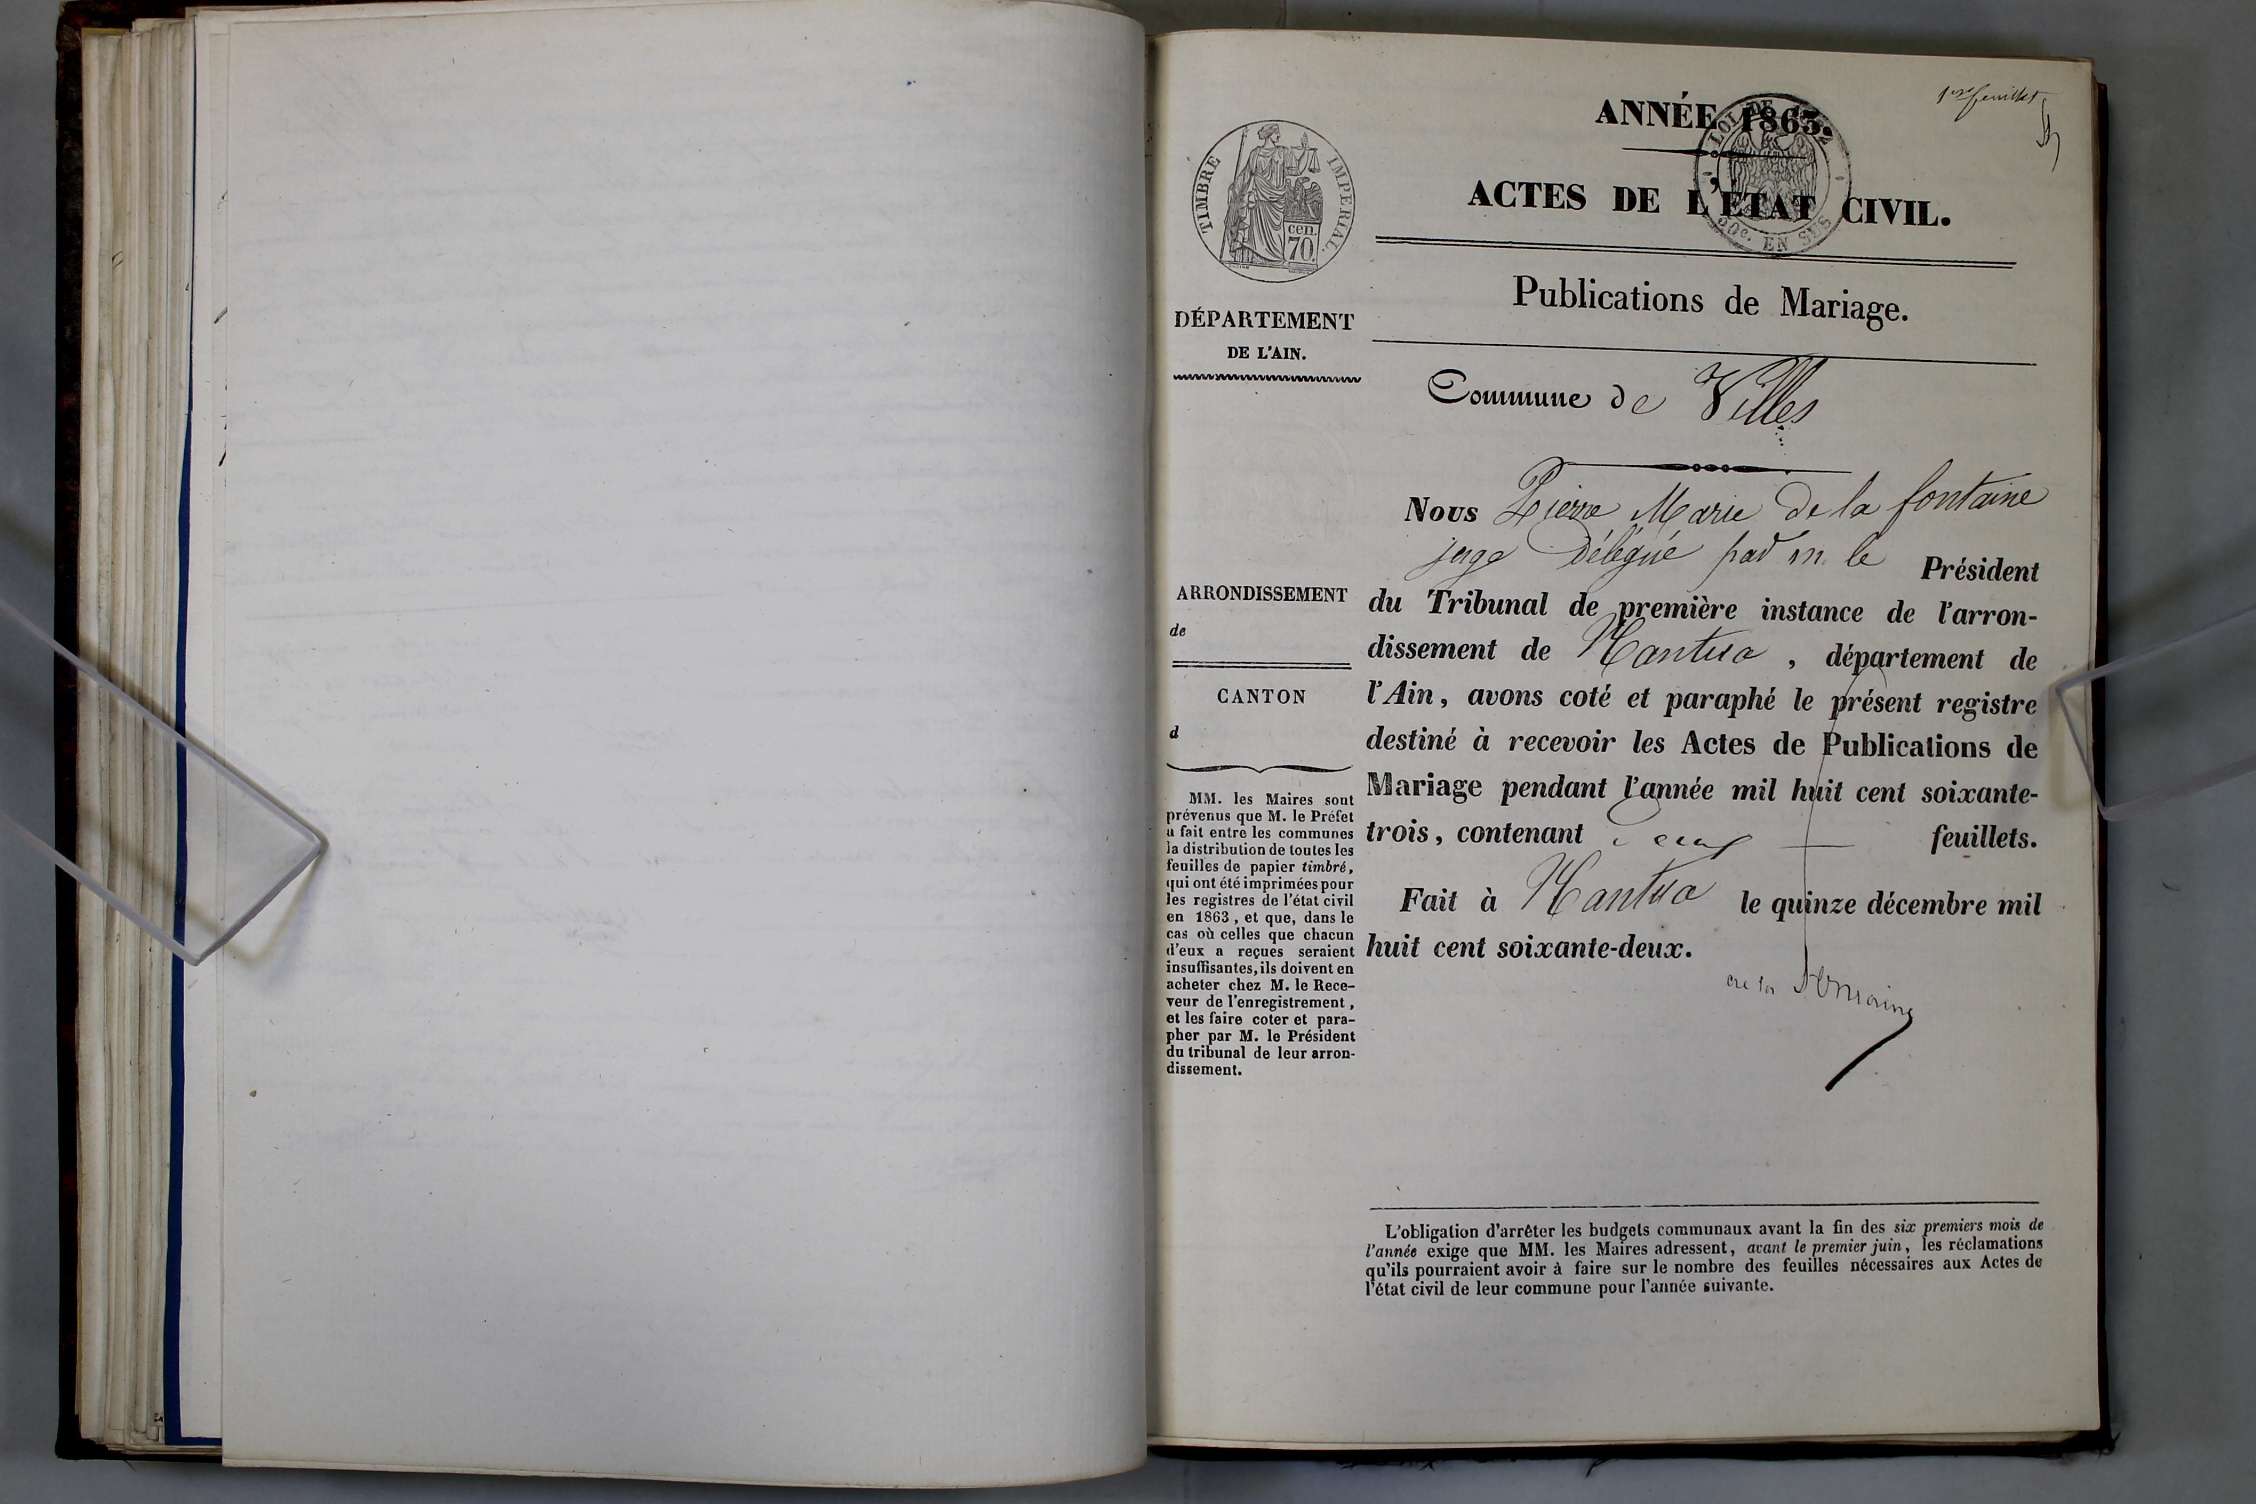 1er feuillet
ANNÉE 1863.
LOI DE 1862
50c. EN SUS
ACTES DE L'ÉTAT CIVIL.
TIMBRE IMPÉRIAL.
cen.
70.
Publications de Mariage.
DÉPARTEMENT
DE L'AIN.
Commune de Villes
Nous Pierre Marie De la fontaine
juge Délégué par m. le Président
du Tribunal de première instance de l'arron-
dissement de Nantua, département de
l'Ain, avons coté et paraphé le présent registre
destiné à recevoir les Actes de Publications de
Mariage pendant l'année mil huit cent soixante-
trois, contenant Deux feuillets.
Fait à Nantua le quinze décembre mil
huit cent soixante-deux.
ARRONDISSEMENT
de
CANTON
d
MM. les Maires sont
prévenus que M. le Préfet
a fait entre les communes
la distribution de toutes les
feuilles de papier timbré,
qui ont été imprimées pour
les registres de l'état civil
en 1863, et que, dans le
cas où celles que chacun
d'eux a reçues seraient
insuffisantes, ils doivent en
acheter chez M. le Rece-
veur de l'enregistrement,
et les faire coter et para-
pher par M. le Président
du tribunal de leur arron-
dissement.
L'obligation d'arrêter les budgets communaux avant la fin des six premiers mois de
l'année exige que MM. les Maires adressent, avant le premier juin, les réclamations
qu'ils pourraient avoir à faire sur le nombre des feuilles nécessaires aux Actes de
l'état civil de leur commune pour l'année suivante.